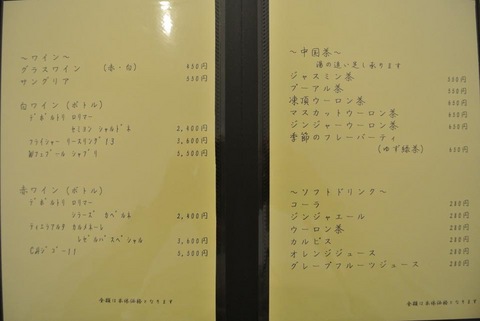 ～ワイン～
グラスワイン (赤・白) 450円
サングリア 550円
白ワイン (ボトル)
デ ボルトリ ロリマー
セミヨン シャルドネ 2,400円
フライシャー リースリング 13 3,600円
シャブリ 5,500円
赤ワイン (ボトル)
デ ボルトリ ロリマー
シラーズ カベルネ 2,400円
レゼルバ スペシャル 3,600円
5,500円
金額は本体価格となります
～中国茶～
湯の追い足し承ります
ジャスミン茶 550円
プーアル茶 550円
凍頂ウーロン茶 650円
マスカットウーロン茶 650円
ジンジャーウーロン茶 650円
季節のフレーバーティ
(ゆず緑茶) 650円
～ソフトドリンク～
コーラ 280円
ジンジャエール 280円
ウーロン茶 280円
カルピス 280円
オレンジジュース 280円
グレープフルーツジュース 280円
金額は本体価格となります